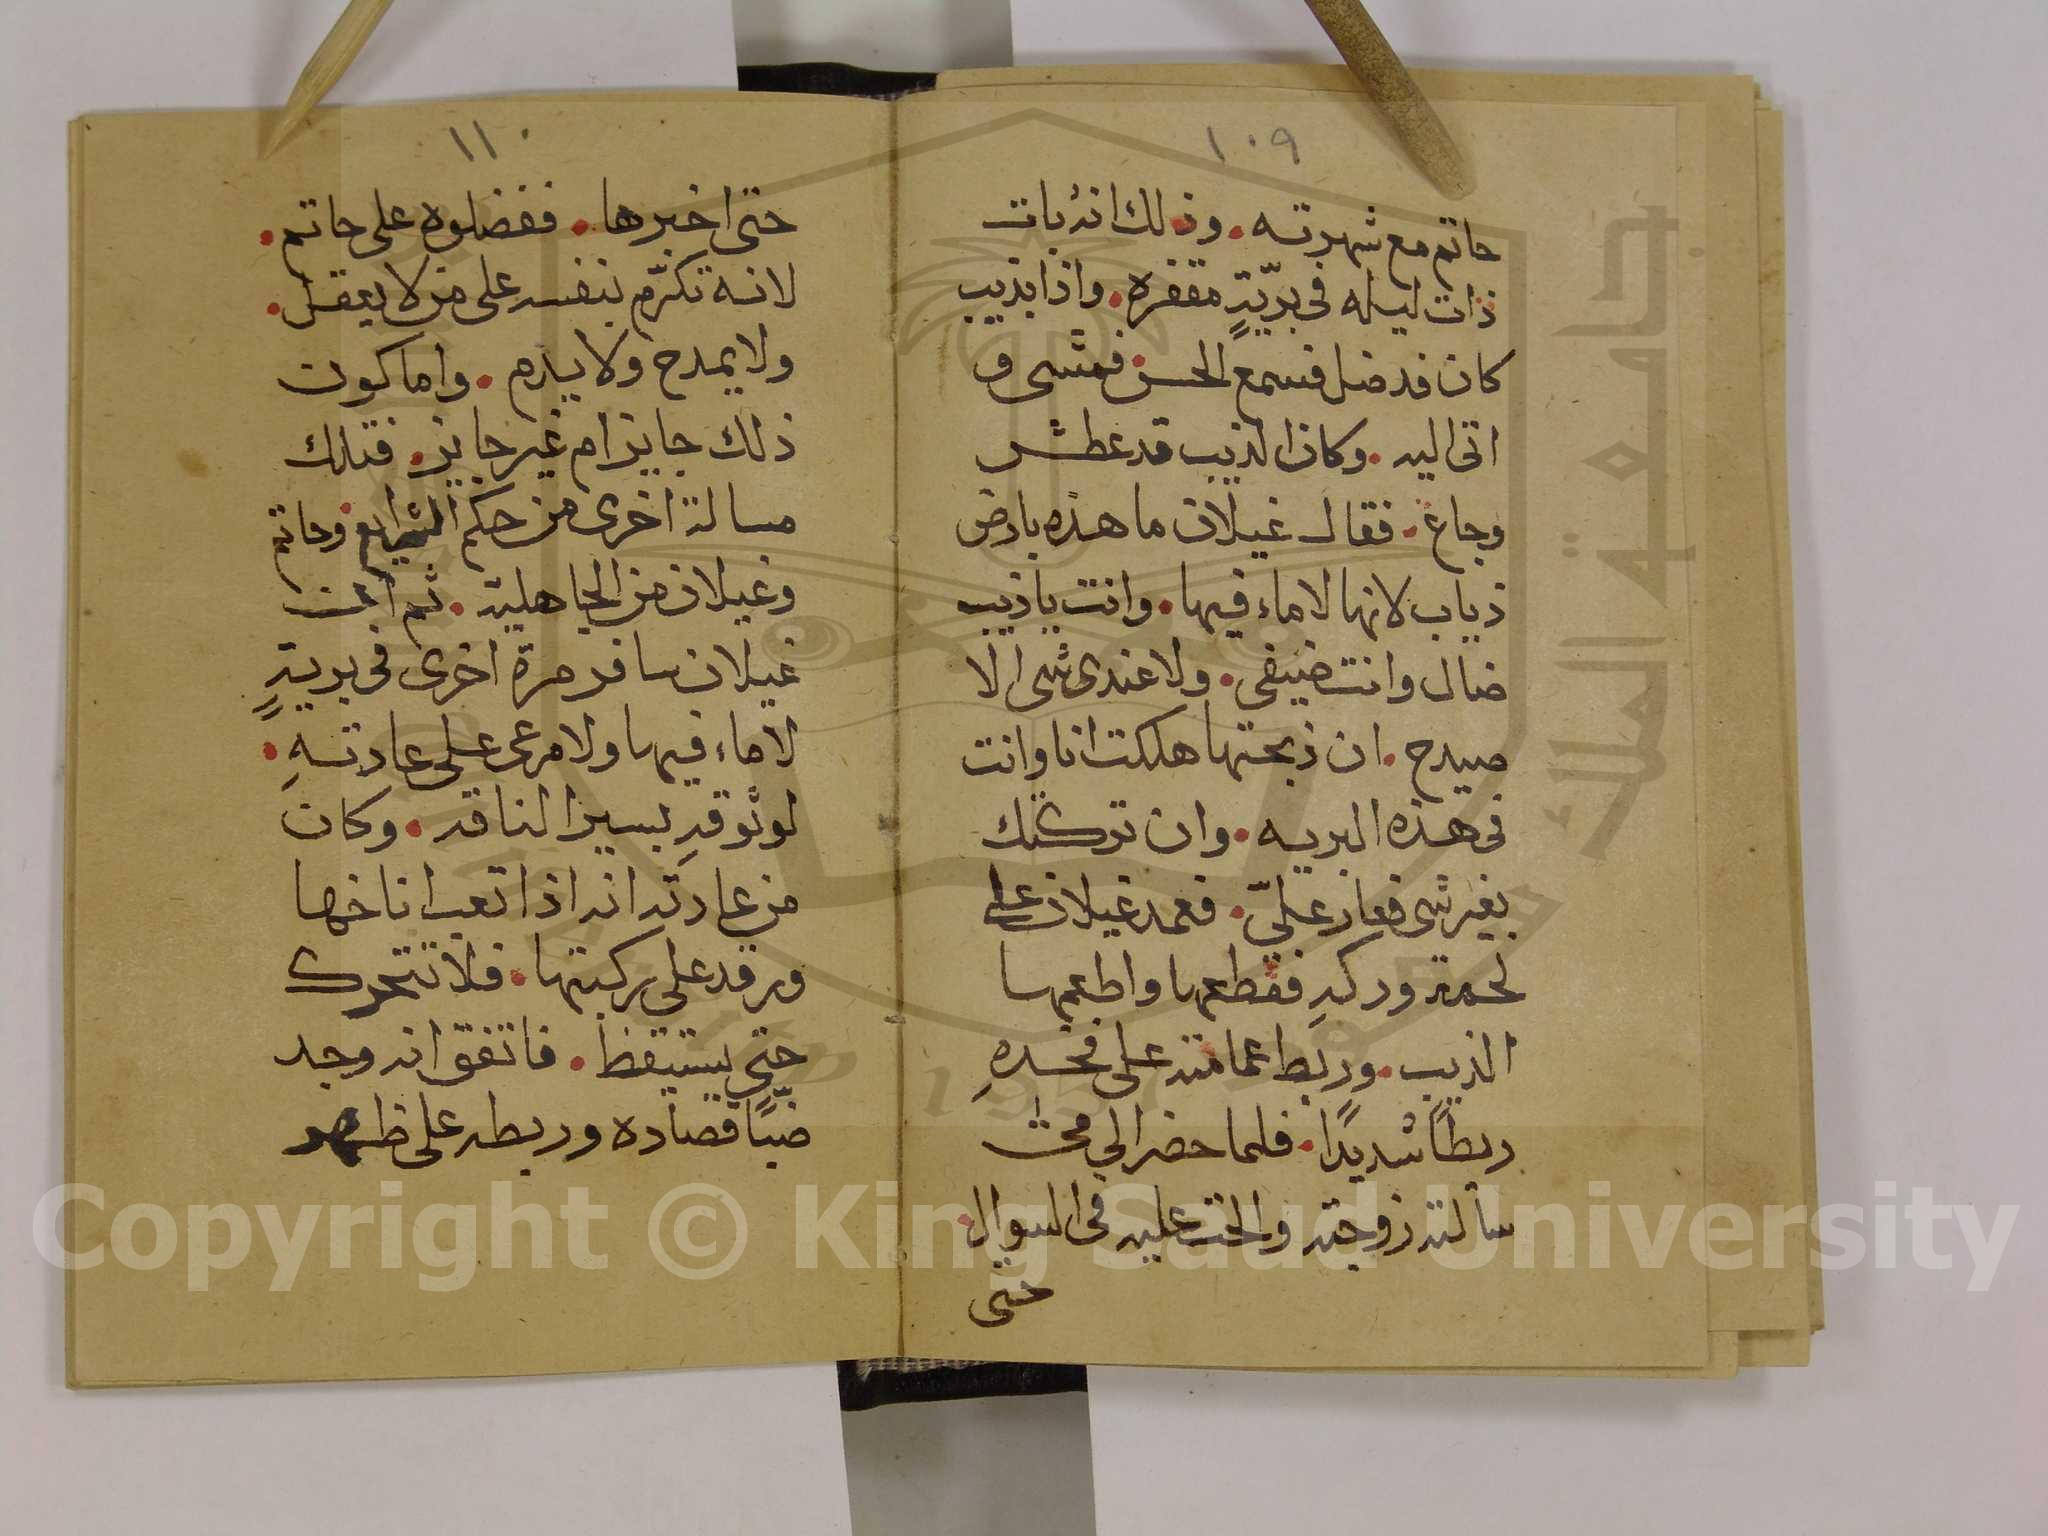 ١٠٩
حاتم مع شهرته . وذلك انه بات
ذات ليله في بريّةٍ مقفره . واذا بذيب
كان قد ضل فسمع الحس فمشى و
اتى اليه . وكان الذيب قد عطش
وجاع . فقال غيلان ما هذه بارض
ذياب لانها لا ماء فيها . وانت يا ذيب
ضال وانت ضيفي . ولا عندى شى الا
صيدح . ان ذبحتها هلكت انا وانت
فى هذه البريه . وان تركتك
بغير شى فعار عليّ . فعمد غيلان على
لحمة وركهِ فقطعها واطعمها
الذيب . وربط عمامته على فخدهِ
ربطاً شديدًا . فلما حضر الي
سالته زوجته والحت عليه فى السوال .
حتى
١١٠
حتى اخبرها . ففضلوه على حاتم .
لانه تكرّم بنفسه على من لا يعقل .
ولا يمدح ولا يذم . واما كون
ذلك جايز ام غير جايز . فتلك
مسالة اخرى من حكم الشرايع . وحاتم
وغيلان من الجاهلية . ثم ان
غيلان سافر مرة اخرى فى بريةٍ
لا ماء فيها ولا مرعى على عادتهِ .
لوثوقهِ بسير الناقه . وكان
من عادته انه اذا تعب اناخها
ورقد على ركبتها . فلا تتحرك
حتى يستيقظ . فاتفق انه وجد
ضبّاً فصاده وربطه على ظهر
Copyright © King Saud University
جامعة الملك سعود
1957